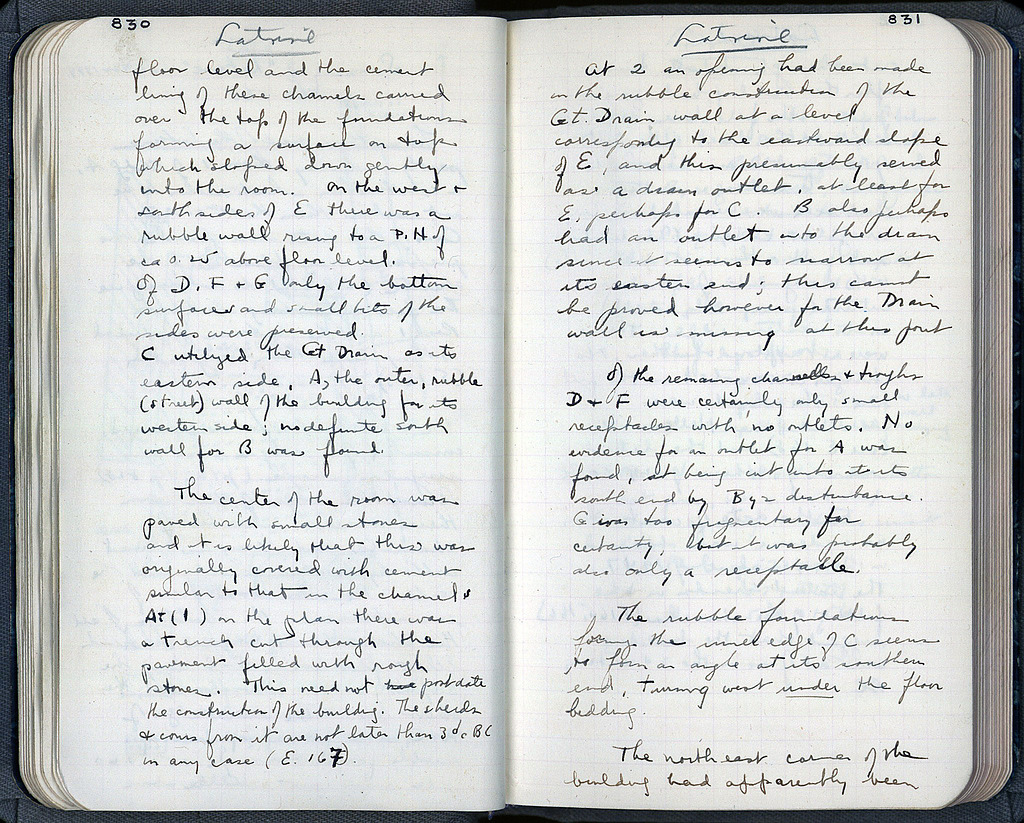 830
Latrine
floor level and the cement
lining of these channels carried
over the tops of the foundations
forming a surface on top
which sloped down gently
into the room. On the west +
south sides of E there was a
rubble wall rising to a P.H. of
ca 0.25 above floor level.
Of D, F + G only the bottom
surfaces and small bits of the
sides were preserved.
C utilized the Gt Drain as its
eastern side, A, the outer, rubble
(street) wall of the building for its
western side; no definite south
wall for B was found.
The center of the room was
paved with small stones
and it is likely that this was
originally covered with cement
similar to that in the channels
At (1) on the plan there was
a trench cut through the
pavement filled with rough
stones. This need not post date
the construction of the building. The sherds
+ coins from it are not later than 3d c BC
in any case (E. 167).
831
Latrine
At 2 an opening had been made
in the rubble construction of the
Gt. Drain wall at a level
corresponding to the eastward slope
of E, and this presumably served
as a drain outlet, at least for
E, perhaps for C. B also perhaps
had an outlet into the drain
since it seems to narrow at
its eastern end; this cannot
be proved however for the Drain
wall is missing at this point
Of the remaining channels + troughs
D + F were certainly only small
receptacles with no outlets. No
evidence for an outlet for A was
found, it being cut into at its
south end by Byz disturbance.
G was too fragmentary for
certainty, but it was probably
also only a receptacle.
The rubble foundations
facing the inner edge of C seems
to form an angle at its southern
end, turning west under the floor
bedding.
The northeast corner of the
building had apparently been